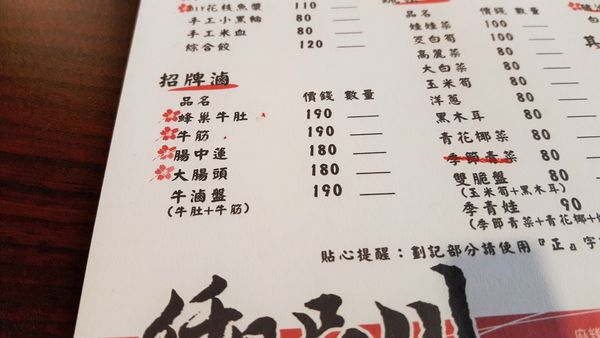 花枝魚漿 110
手工小黑輪 80
手工米血 80
綜合餃 120
招牌滷
品名 價錢 數量
蜂巢牛肚 190
牛筋 190
腸中蓮 180
大腸頭 180
牛滷盤 190
(牛肚+牛筋)
品名 價錢 數量
娃娃菜 100
茭白筍 80
高麗菜 80
大白菜 80
玉米筍 80
洋蔥 80
黑木耳 80
青花椰菜 80
季節青菜 80
雙脆盤 80
(玉米筍+黑木耳)
季青娃 90
(季節青菜+青花+娃
貼心提醒：劃記部分請使用『正』字